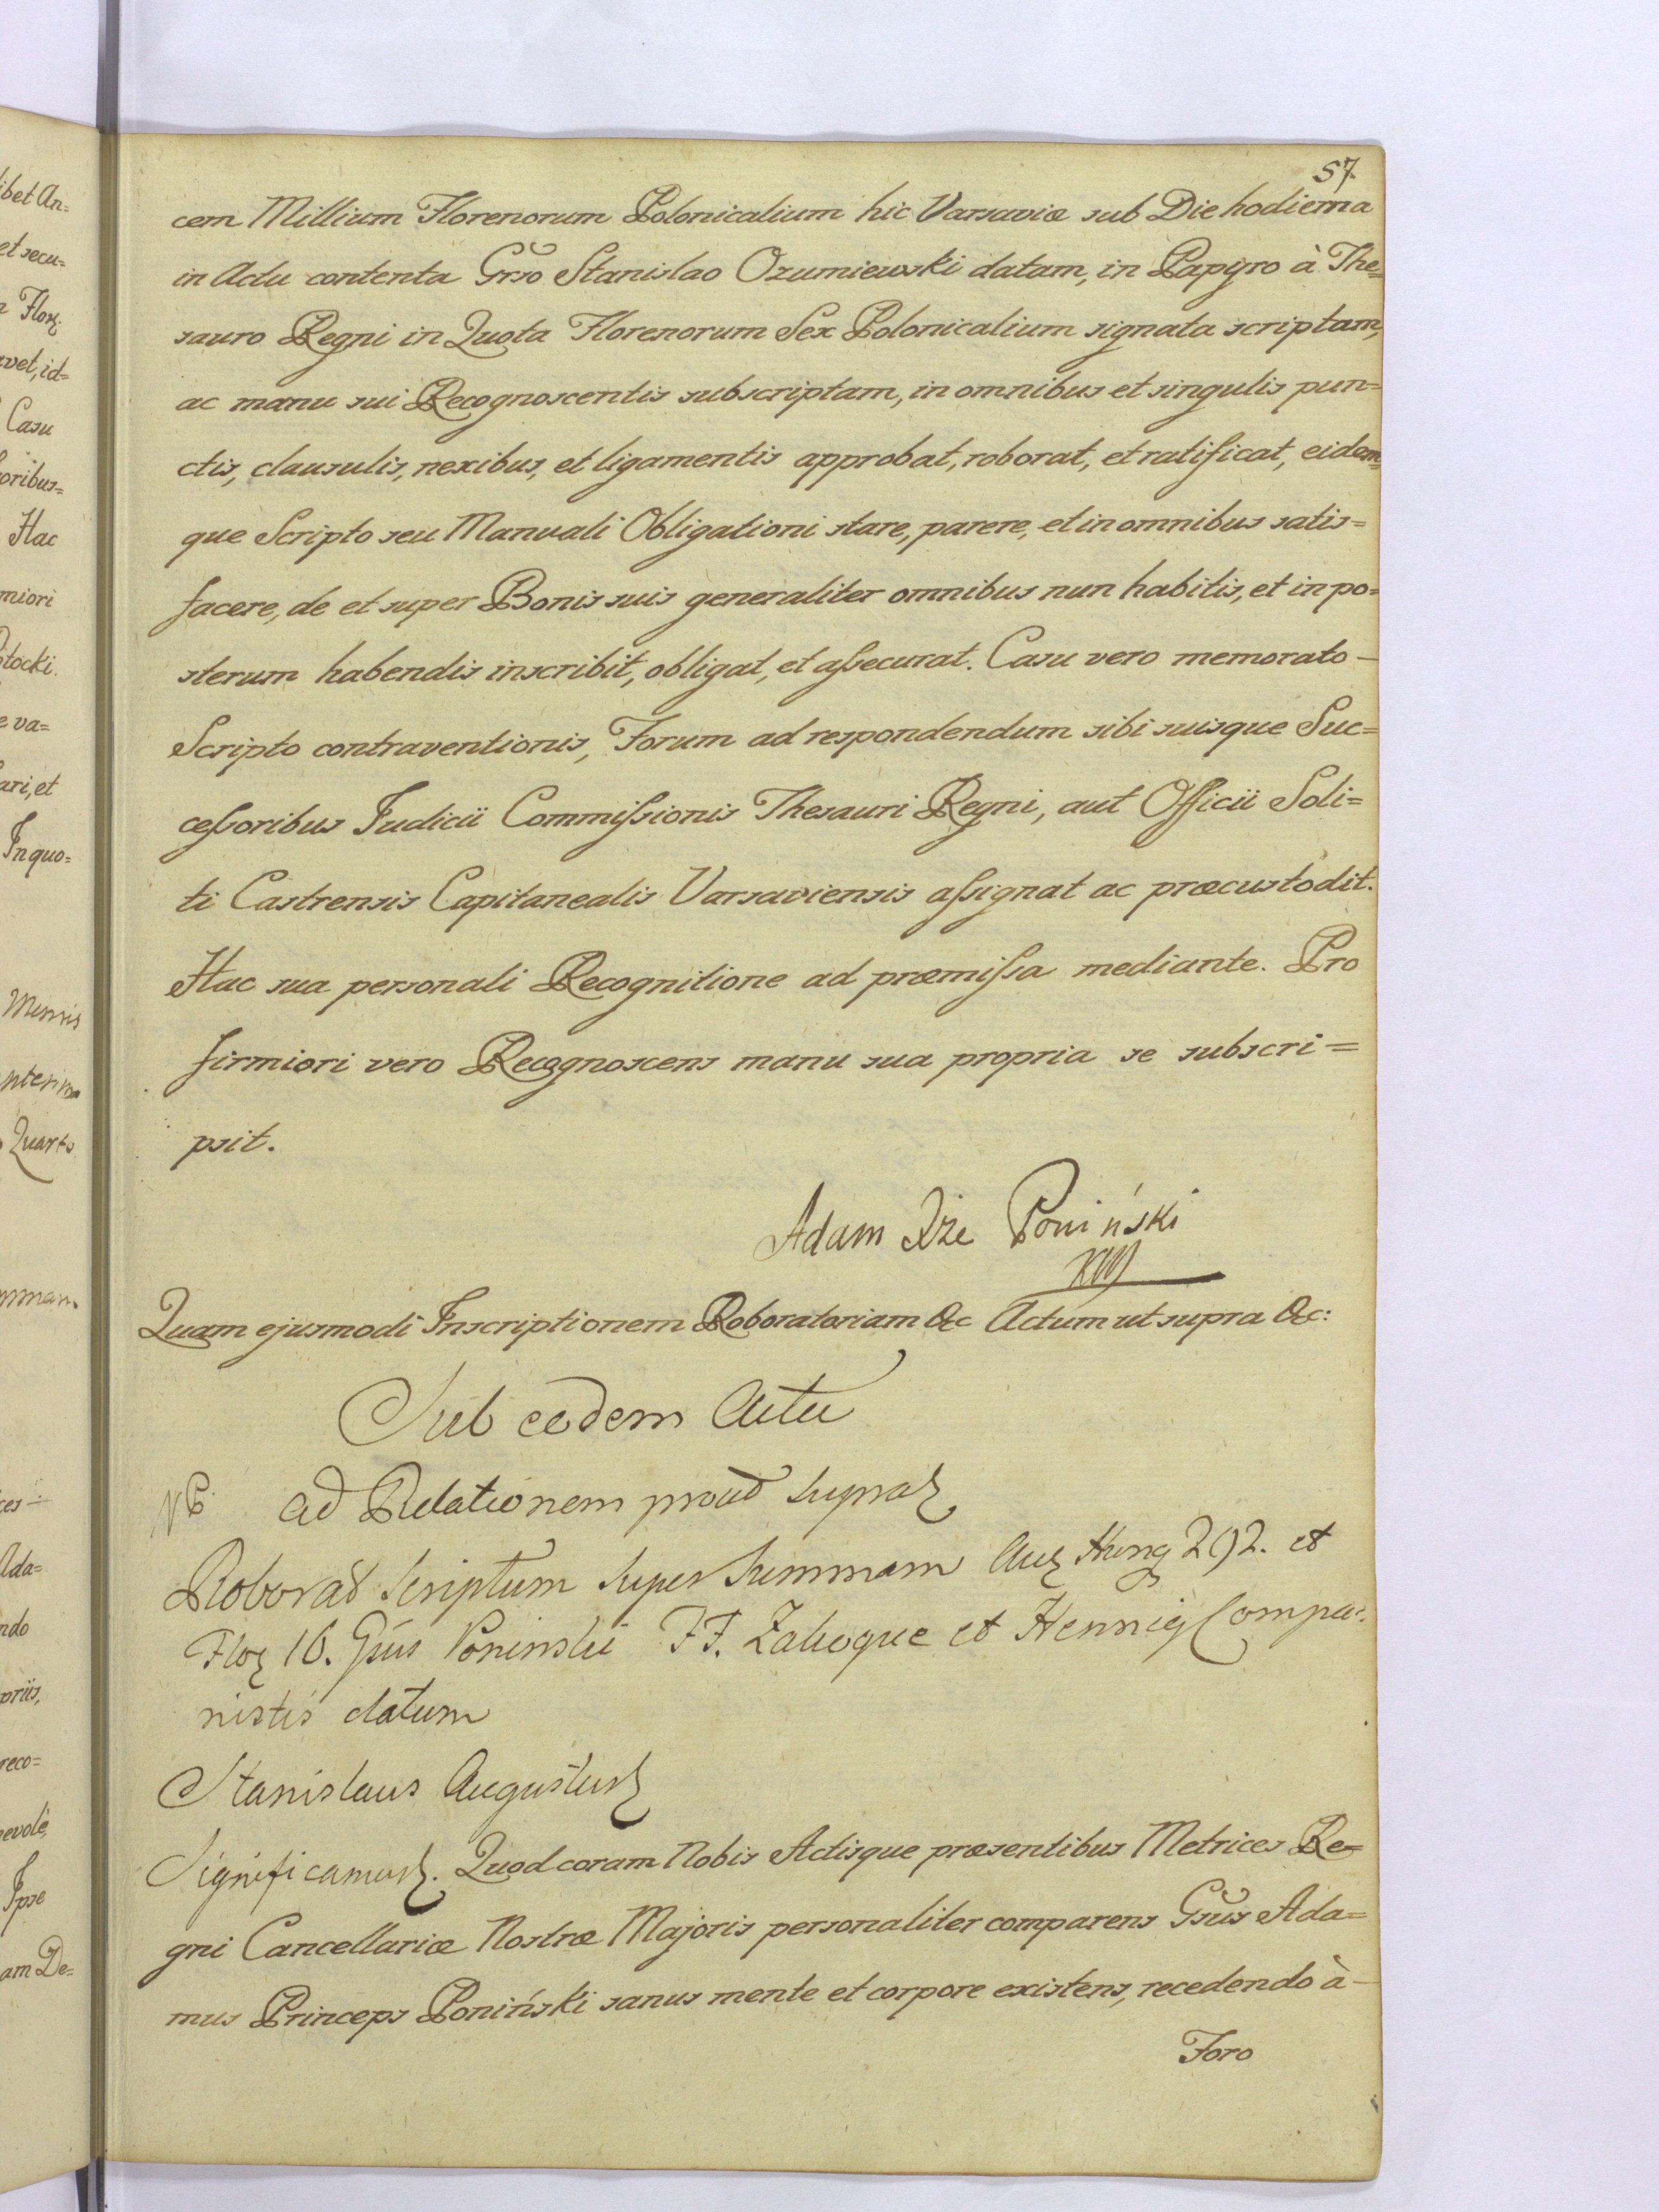 57.
cem Millium Florenorum Polonicalium hic Varsaviæ sub Die hodierna
in Actu contenta Grso Stanislao Ozumiewski datam, in Papyro à The=
sauro Regni in Quota Florenorum Sex Polonicalium signata scriptam,
ac manu sui Recognoscentis subscriptam, in omnibus et singulis pun=
ctis, clausulis, nexibus, et ligamentis approbat, roborat, et ratificat, eidem=
que Scripto seu Manuali Obligationi stare, parere, et in omnibus satis=
facere, de et super Bonis suis generaliter omnibus nun habitis, et in po=
sterum habendis inscribit, obligat, et assecurat. Casu vero memorato -
Scripto contraventionis, Forum ad respondendum sibi suisque Suc=
cessoribus Judicii Commissionis Thesauri Regni, aut Officii Soli=
ti Castrensis Capitanealis Varsaviensis assignat ac præcustodit.
Hac sua personali Recognitione ad præmissa mediante. Pro
firmiori vero Recognoscens manu sua propria se subscri=
psit.
Adam Xże Poniński
Quam ejusmodi Inscriptionem Roboratoriam &c Actum ut supra &c:
Sub eodem Actu
ad Relationem prout supra
Roborat scriptum super summam Hung 292. et
Flor 16. Poninski FF. Zalogue et Hennig Compa=
nistis datum
Stanislaus Augustus
Significamus. Quod coram Nobis Actisque præsentibus Metrices Re=
gni Cancellariæ Nostræ Majoris personaliter comparens Gsus Ada=
mus Princeps Poniński sanus mente et corpore existens, recedendo à -
Foro
ibet An=
et secu=
Flor
vet, id=
Casu
oribus=
Hac
miori
tocki.
e va=
ari, et
In quo=
Mensis
Quarto
Ada=
ndo
priis,
reco=
evolè,
Ipse
am De=